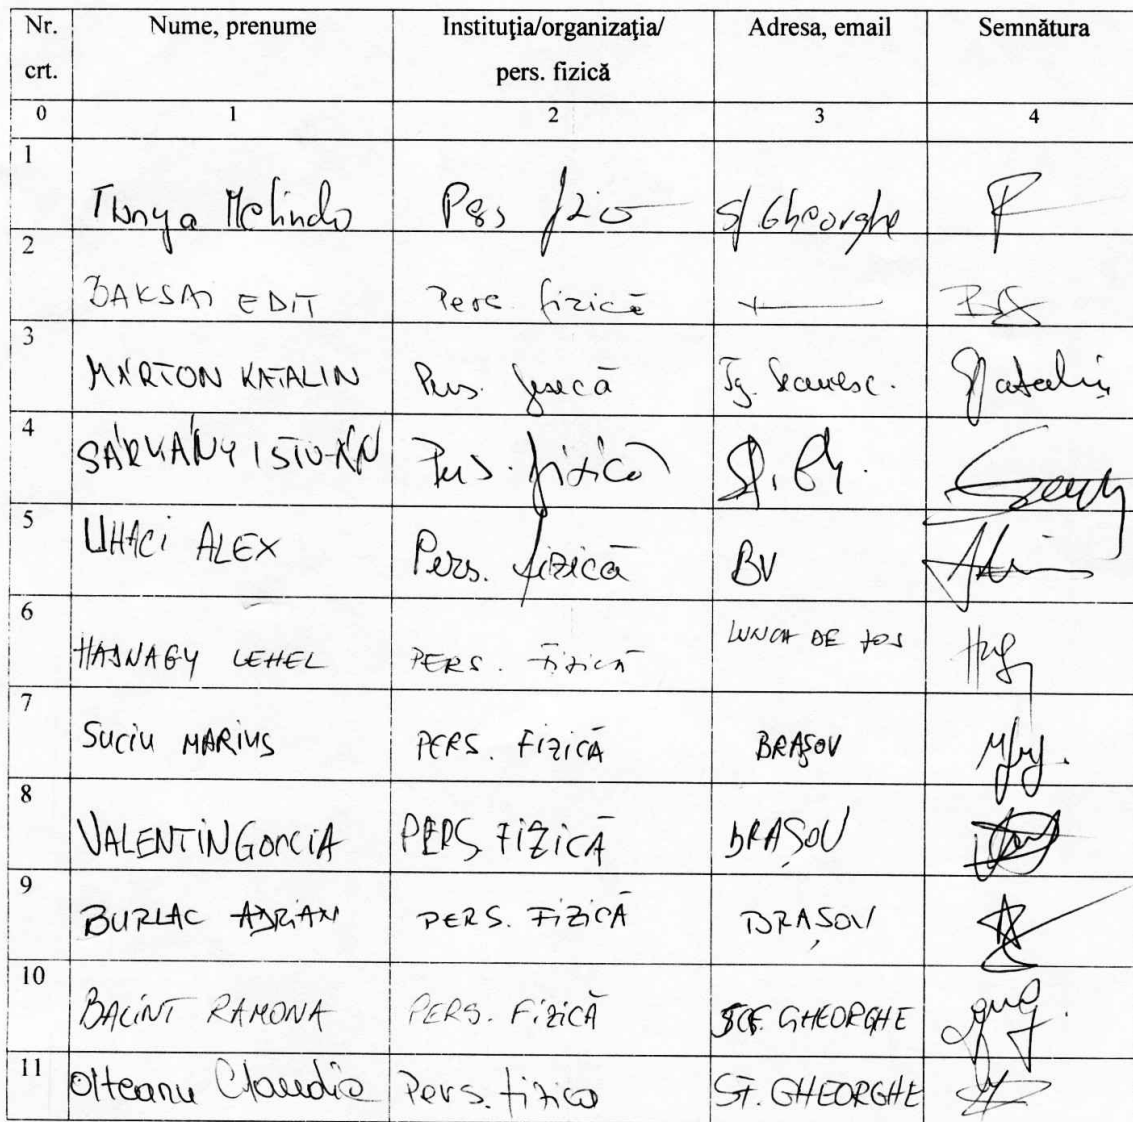 Nr. crt. Nume, prenume Instituția/organizația/ pers. fizică Adresa, email Semnătura
0 1 2 3 4
1 Melinda Pers Sf. Gheorghe
2 BAKSAI EDIT Pers. fizică
3 MÁRTON KATALIN Pers.
4 SÁRKÁNY Pers. fizică Sf. Gh.
5 UHACI ALEX Pers. fizică BV
6 HAJNAGY LEHEL PERS. Fizică LUNCA DE JOS
7 SUCIU MARIUS PERS. FIZICĂ BRAȘOV
8 VALENTIN PERS FIZICĂ BRAȘOV
9 BURLAC ADRIAN PERS. FIZICĂ BRAȘOV
10 BALINT RAMONA PERS. FIZICĂ GHEORGHE
11 Olteanu Claudia Pers. fizica SF. GHEORGHE